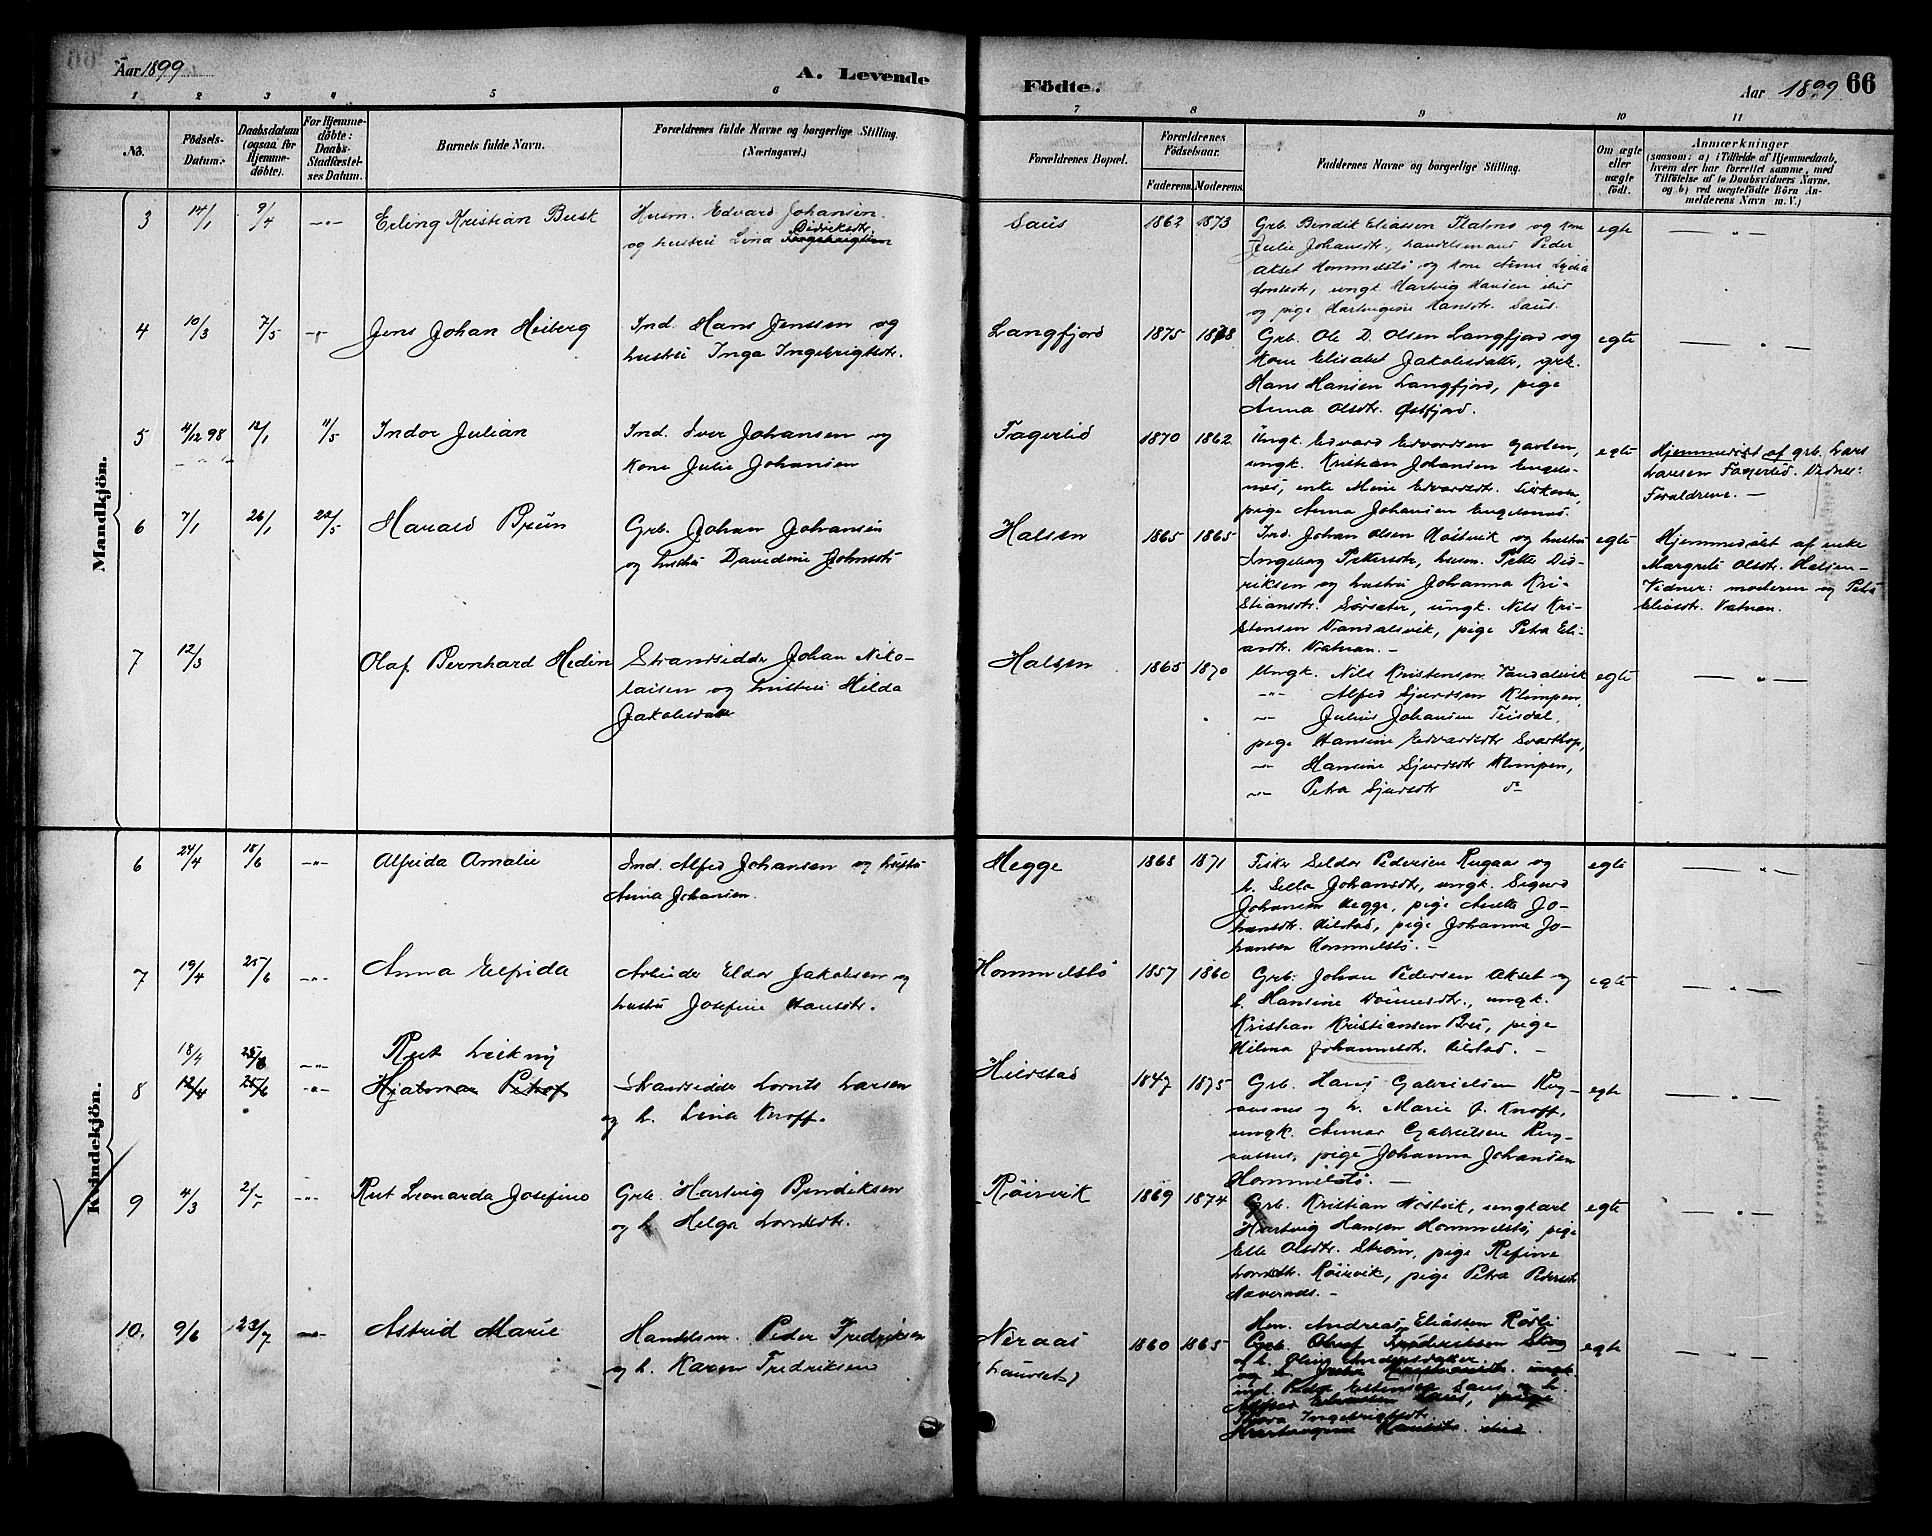 Aar 1899
A. Levende
Födte.
Aar 1899 66
1 2 3 4 5 6 7 8 9 10 11
No.
Födsels-
Datum.
Daabsdatum
(ogsaa for
Hjemme-
döbte).
For Hjemme-
döbte:
Daabs-
Stadfæstel-
ses Datum.
Barnets fulde Navn.
Forældrenes fulde Navne og borgerlige Stilling.
(Næringsvei.)
Forældrenes Bopæl.
Forældrenes
Födselsaar.
Faderens. Moderens.
Faddernes Navne og borgerlige Stilling.
Om ægte
eller
uægte
födt.
Anmærkninger
(saasom: a) i Tilfælde af Hjemmedaab,
hvem der har forrettet samme, med
Tilföielse af to Daabsvidners Navne,
og b) ved uegtefödte Börn An-
melderens Navn m. V.)
Mandkjön.
3 14/1 9/4 -"- Erling Kristian Busk
Husm. Edvard Johansen
Didriksdtr.
og hustru Lina Ingebrigtsen
Saus 1862 1873
Grb. Bendik Eliassen Flatmo og kone
Julie Johansdtr., handelsmand Peder
Akset Hommelstø og kone Anne Lydia
ungk. Hartvig Hansen ibid
og pige Hartvigine Hansdtr. Saus.
egte — " —
4 10/3 7/5 -"- Jens Johan Heiberg
Ind. Hans Jenssen og
hustru Inga Ingebrigtsdtr.
Langfjord 1875 1878
Grb. Ole D. Olsen Langfjord og
kone Elisabet Jakobsdatter, grb.
Hans Hansen Langfjord, pige
Anna Olsdtr. Østfjord.
egte — " —
5 4/12 98 12/1 11/5 Indor Julian
Ind. Iver Johansen og
kone Julie Johansen
Fagerlid 1870 1862
Ungk. Edvard Edvardsen
ungk. Kristian Johansen Engels-
næs, enke Mine Edvardsdtr.
pige Anna Johansen Engelsnæs.
egte
Hjemmedøbt af grb. Lars
Larsen Fagerlid. Vidner:
Forældrene. —
6 7/1 26/1 22/5 Harald Brun
Grb. Johan Johansen
og hustru Davidine Johnsdtr
Halsen 1865 1865
Ind. Johan Olsen Høstvik og hustru
Ingeborg Pettersdtr, husm. Petter Did-
riksen og hustru Johanna Kri-
stiansdtr. Sørsæter, ungk. Nils Kri-
stensen Vandalsvik, pige Petra Eli-
asdtr. Vatnan. —
egte
Hjemmedøbt af enke
Margrete Olsdtr. Halsen —
Vidner: moderen og Petra
Eliasdtr. Vatnan.
7 12/3 Olaf Bernhard Hedin
Strandsidder Johan Niko-
laisen og hustru Hilda
Jakobsdatter
Halsen 1865 1870
Ungk. Nils Kristensen Vandalsvik
-"- Alfred Sjurdsen Klimpen,
-"- Julius Johansen Teisdal,
pige Hansine Edvardsdtr Svarthop,
-"- Hansine Sjurdsdtr Klimpen,
-"- Petra Sjursdtr do
egte — " —
Kvindekjön.
6 24/4 18/6 -"- Alfrida Amalie
Ind. Alfred Johansen og hustru
Anna Johansen.
Hegge 1868 1871
Fisker Seldor Pedersen Rugaas og
h. Sella Johansdtr, ungk. Sigurd
Johansen Hegge, pige Anette Jo-
hansdtr. Hilstad, pige Johanna Jo-
hansen Hommelstø. —
egte — " —
7 19/4 25/6 -"- Anna Elfrida
Arbeider Eldor Jakobsen og
hustru Josefine Hansdtr.
Hommelstø 1857 1860
Grb. Johan Pedersen Akset og
h. Hansine ungk.
Kristian Kristiansen Bru, pige
Hilma Johannesdtr. Hilstad. —
egte — " —
18/4 25/6 -"- Rut Leikny
8 12/4 25/6 -"- Hjalmar Petrof
Strandsidder Lornts Larsen
og h. Lina Knoff.
Hildstad 1847 1875
Grb. Hans Gabrielsen Rug-
aasnes og h. Marie J. Knoff,
ungk. Annar Gabrielsen Rug-
aasnes, pige Johanna Johansen
Hommelstø. —
egte — " —
9 4/3 2/7 -"- Rut Leonarda Josefine
Grb. Hartvig Bendiksen
og h. Helga Lorntsdtr.
Røirvik 1869 1874
Grb. Kristian Høstvik, ungkarl
Hartvig Hansen Hommelstø, pige
Elle Olsdtr. Strøm, pige Refine
Lorntsdtr. Røirvik, pige Petra Pedersdtr
egte — " —
10. 9/6 23/7 -"- Astrid Marie
Handelsm. Peder Fredriksen
og h. Karen Fredriksen
Neraas
(Laurset)
1860 1865
Hm. Andreas Eliassen Røsli
Grb. Oluf Frederiksen
og h.
Thora Ingebrigtsdtr.
Hartvigine Hansdtr. ibid.
egte — " —